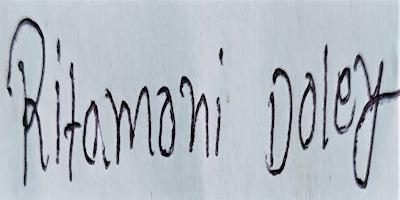 Ritamoni Doley